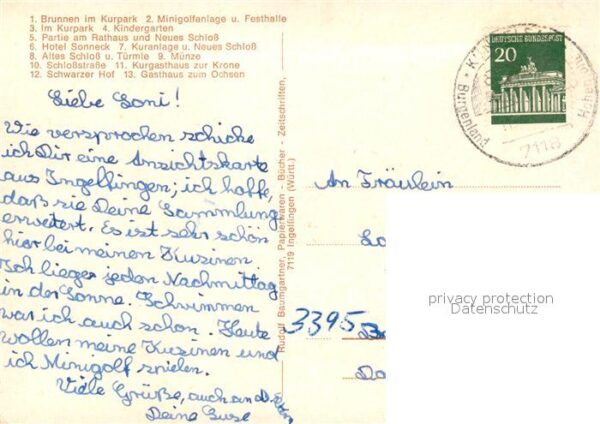 1. Brunnen im Kurpark 2. Minigolfanlage u. Festhalle
3. Im Kurpark 4. Kindergarten
5. Partie am Rathaus und Neues Schloß
6. Hotel Sonneck 7. Kuranlage u. Neues Schloß
8. Altes Schloß u. Türmle 9. Münze
10. Schloßstraße 11. Kurgasthaus zur Krone
12. Schwarzer Hof 13. Gasthaus zum Ochsen
DEUTSCHE BUNDESPOST
20
Burgenland
7118
Liebe Soni!
Wie versprochen schicke
ich Dir eine Ansichtskarte
aus Ingelfingen; ich hoffe,
daß sie Deine Sammlung
erweitert. Es ist sehr schön
hier bei meinen Kusinen
Ich liege jeden Nachmittag
in der Sonne. Schwimmen
war ich auch schon. Heute
wollen meine Kusinen und
ich Minigolf spielen.
Viele Grüße, auch an
Deine Suse
Rudolf Baumgartner, Papierwaren - Bücher - Zeitschriften,
7119 Ingelfingen (Württ.)
An Fräulein
3395
privacy protection
Datenschutz